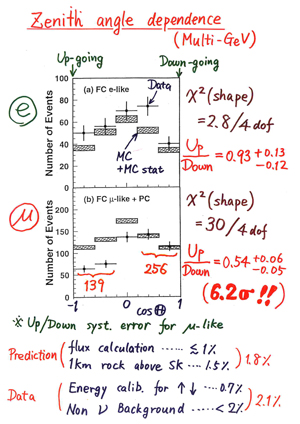 Zenith angle dependence
(Multi-GeV)
Up-going
Down-going
e
Number of Events
100
80
60
40
20
0
(a) FC e-like
Data
MC
+MC stat
χ²(shape)
=2.8/4 dof
Up/Down = 0.93 +0.13 -0.12
μ
Number of Events
200
150
100
50
0
(b) FC μ-like + PC
139
256
-1 0 1
cosΘ
χ²(shape)
=30/4 dof
Up/Down = 0.54 +0.06 -0.05
(6.2σ!!)
※ Up/Down syst. error for μ-like
Prediction (flux calculation ····· ≲ 1% 1km rock above SK ··· 1.5%) 1.8%
Data (Energy calib. for ↑↓ ···· 0.7% Non ν Background ····· < 2%) 2.1%